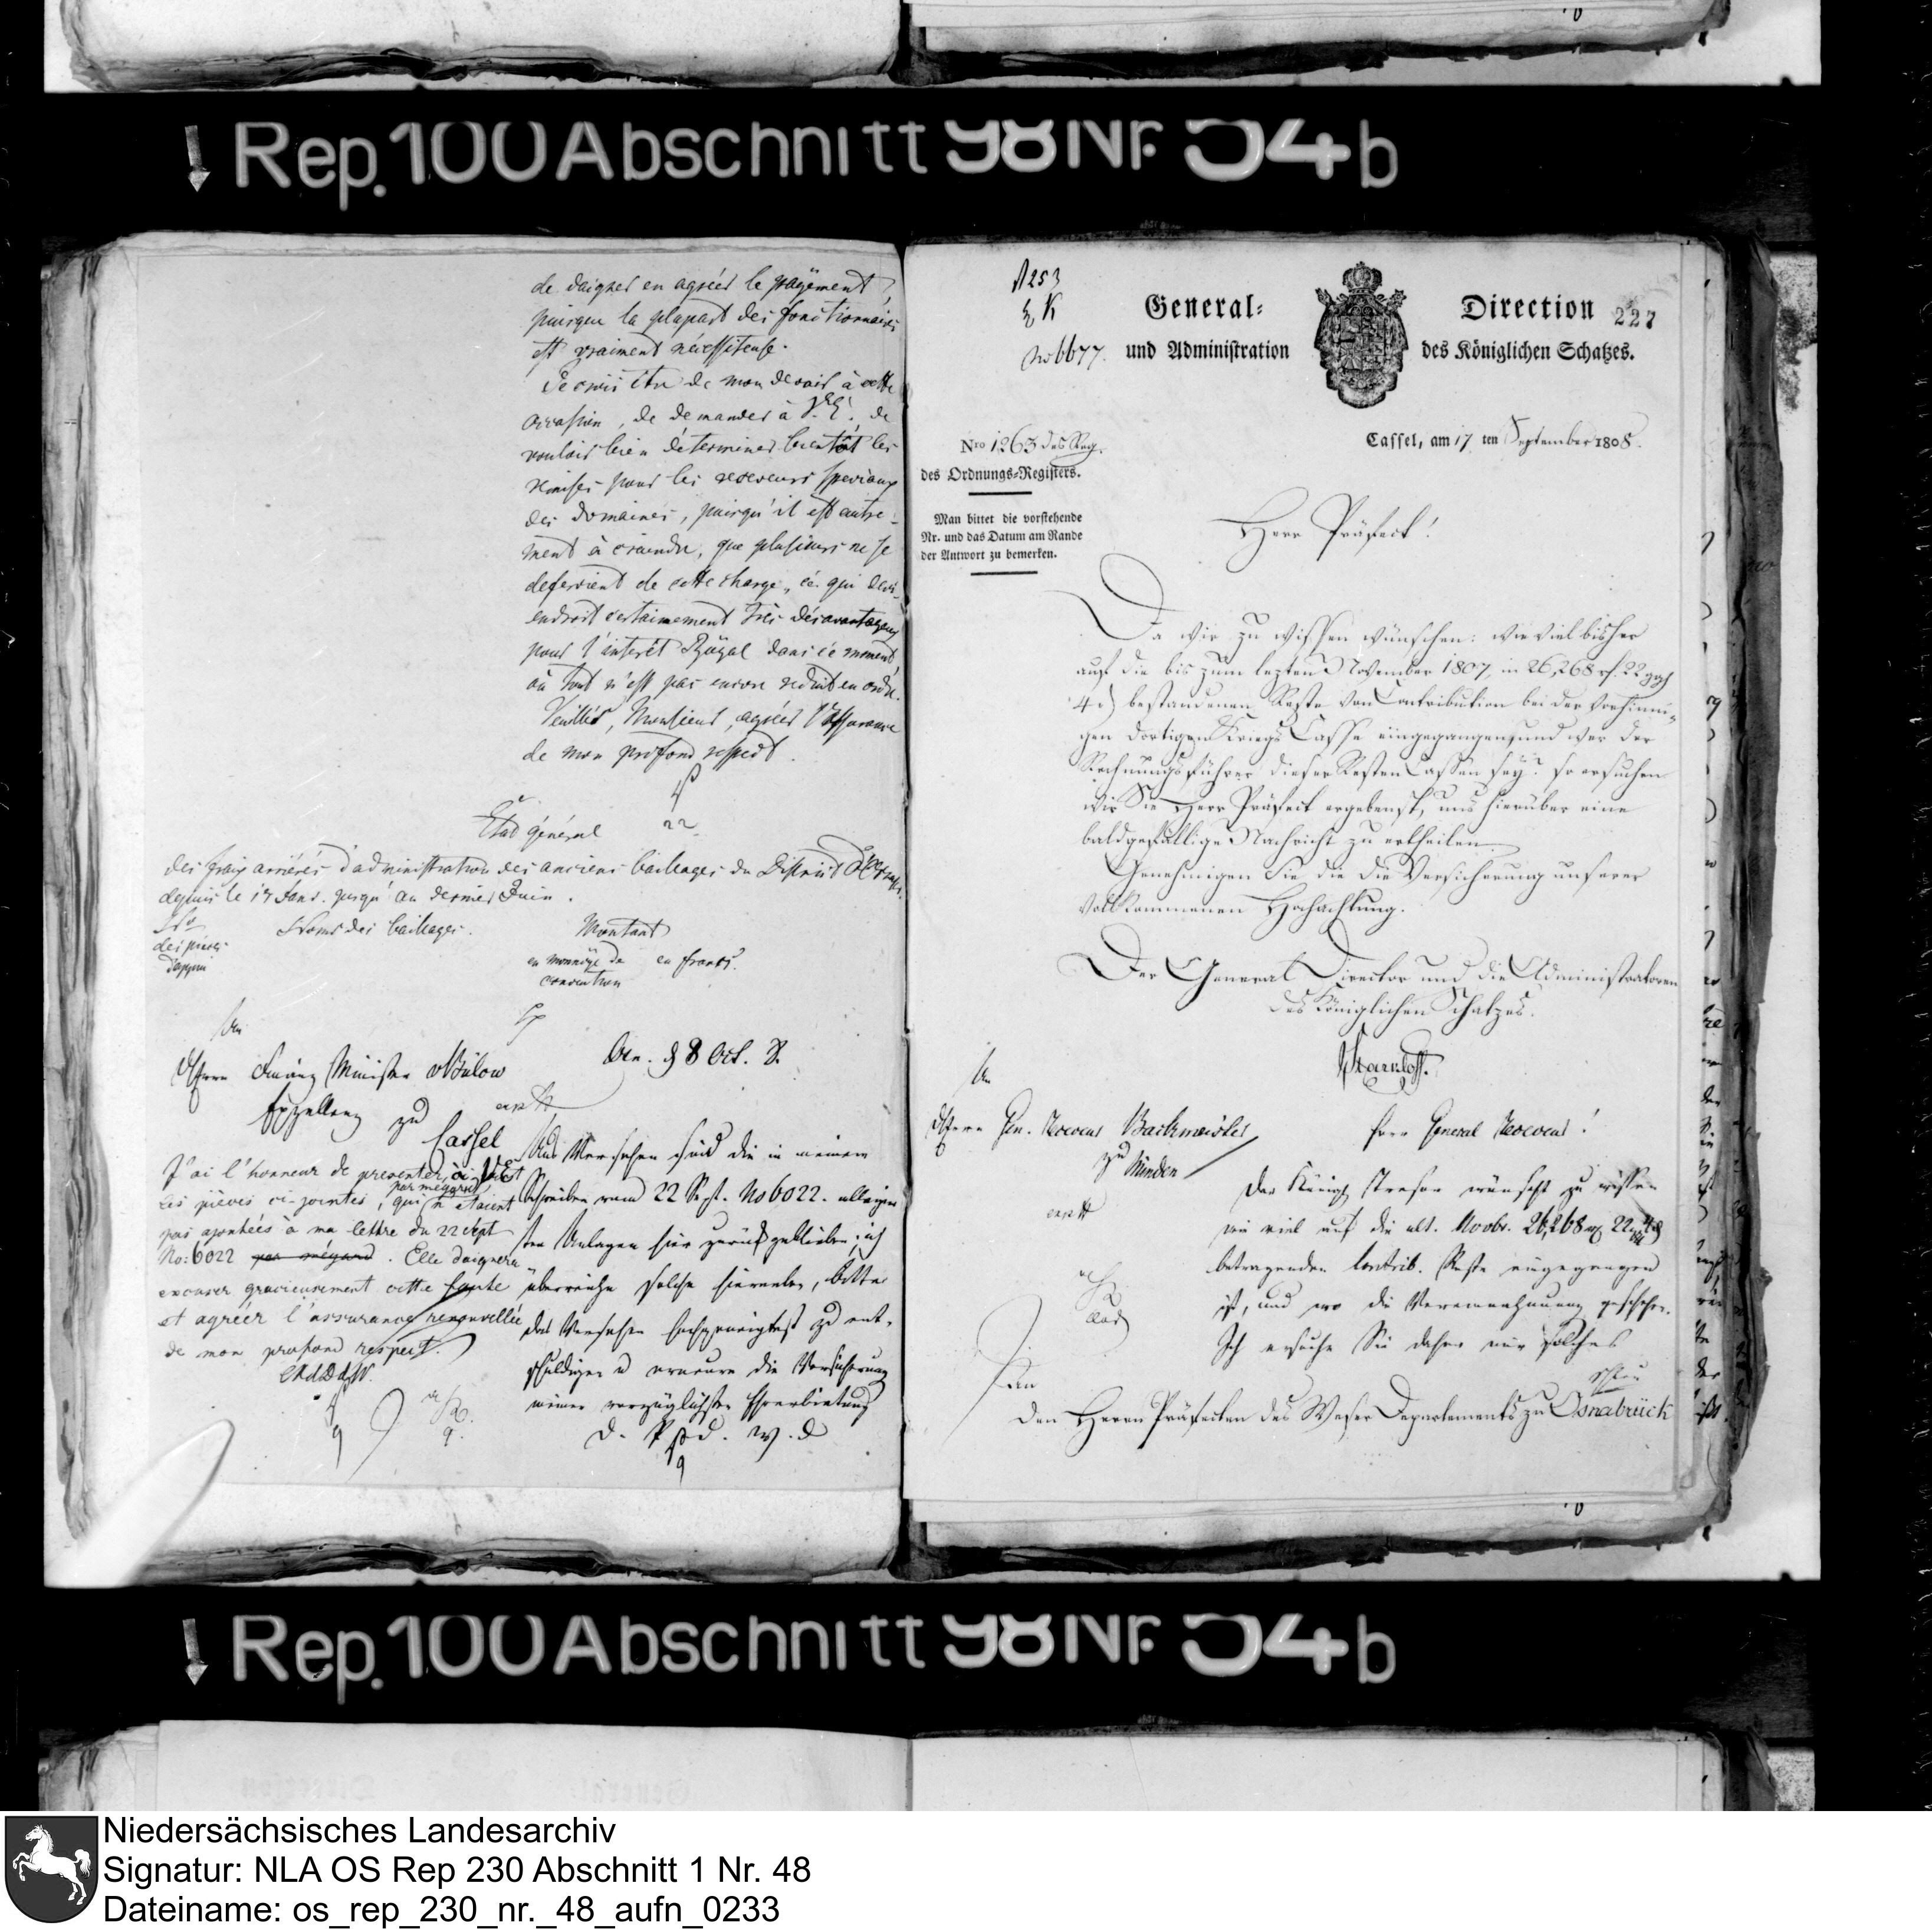 Rep. 100 Abschnitt 98 Nr. 54b
de daigner en agréer le payement
puisque la plupart des fonctionnaires
est vraiment nécessiteuse.
Je crois être de mon devoir à cette
occasion, de demander à V. E. de
vouloir bien déterminer bientôt les
remises pour les receveurs speciaux
des domaines, puisqu'il est autre-
ment à craindre, que plusieurs ne se
defassent de cette charge, ce qui devi-
endroit certainement très désavantageux
pour l'interêt Royal dans ce moment,
où tout n'est pas encore reduit en ordre.
Veuillés, Monsieur, agréer l'assurance
de mon profond respect.
22
Etat général
des frais arriérés d'administration des anciens bailliages du District d'
depuis le 1r Janv. jusqu'au dernier Juin.
No
des pièces
d'appui
Noms des bailliages.
Montant
en monnoye de
convention
en francs.
An
Herrn Finanz Minister v Bülow
Exzellenz zu
Cassel
Osn. d 8 Oct. 8.
J'ai l'honneur de presenter à V.E.
les pièces ci-jointes, qui par mégard n'étaient
pas ajoutées à ma lettre du 22 Sept
No: 6022 par mégard. Elle daignera
excuser gracieusement cette faute
et agréer l'assurance renouvellée
de mon profond respect.
9
Aus Versehen sind die in meinem
Schreiben vom 22 Sept. No 6022. allegir-
ten Anlagen hier zurückgeblieben; ich
überreiche solche hierneben, bitte
das Versehen hochgeneigtest zu ent-
schuldigen u erneure die Versicherung
meiner vorzüglichsten Ehrerbietung
D. P. d. W. D
9
253
K
No 6677.
General-
und Administration
Direction
des Königlichen Schatzes.
227
Nro 1263 des Reg.
des Ordnungs-Registers.
Man bittet die vorstehende
Nr. und das Datum am Rande
der Antwort zu bemerken.
Cassel, am 17 ten September 1808.
Herr Präfect!
Da wir zu wissen wünschen: wie viel bisher
auf die bis zum lezten November 1807, in 26,268 rf. 22 ggl
4 d bestandenen Reste von Contribution bei der vorhinni-
gen dortigen Kriegs Casse eingegangen, und wer der
Rechnungsführer dieser Resten Cassen sey? so ersuchen
wir Sie Herr Präfect ergebenst, uns hierüber eine
baldgefällige Nachricht zu ertheilen.
Genehmigen Sie die die Versicherung unserer
vollkommenen Hochachtung.
Der General Director und die Administratoren
des Königlichen Schatzes.
An
Herrn Gen. Receveur Backmeister
zu Minden
Herr General Receveur!
Der Königl. Tresor wünscht zu wissen
wie viel auf die ult. Novbr. 26,268 rf 22
betragenden Contrib. Reste eingegangen
ist, und wo die Vereinnahmung geschehen.
Ich ersuche Sie daher mir solches
An
Den Herrn Präfecten des Weser Departements zu Osnabrück
Rep. 100 Abschnitt 98 Nr. 54b
Niedersächsisches Landesarchiv
Signatur: NLA OS Rep 230 Abschnitt 1 Nr. 48
Dateiname: os_rep_230_nr._48_aufn_0233